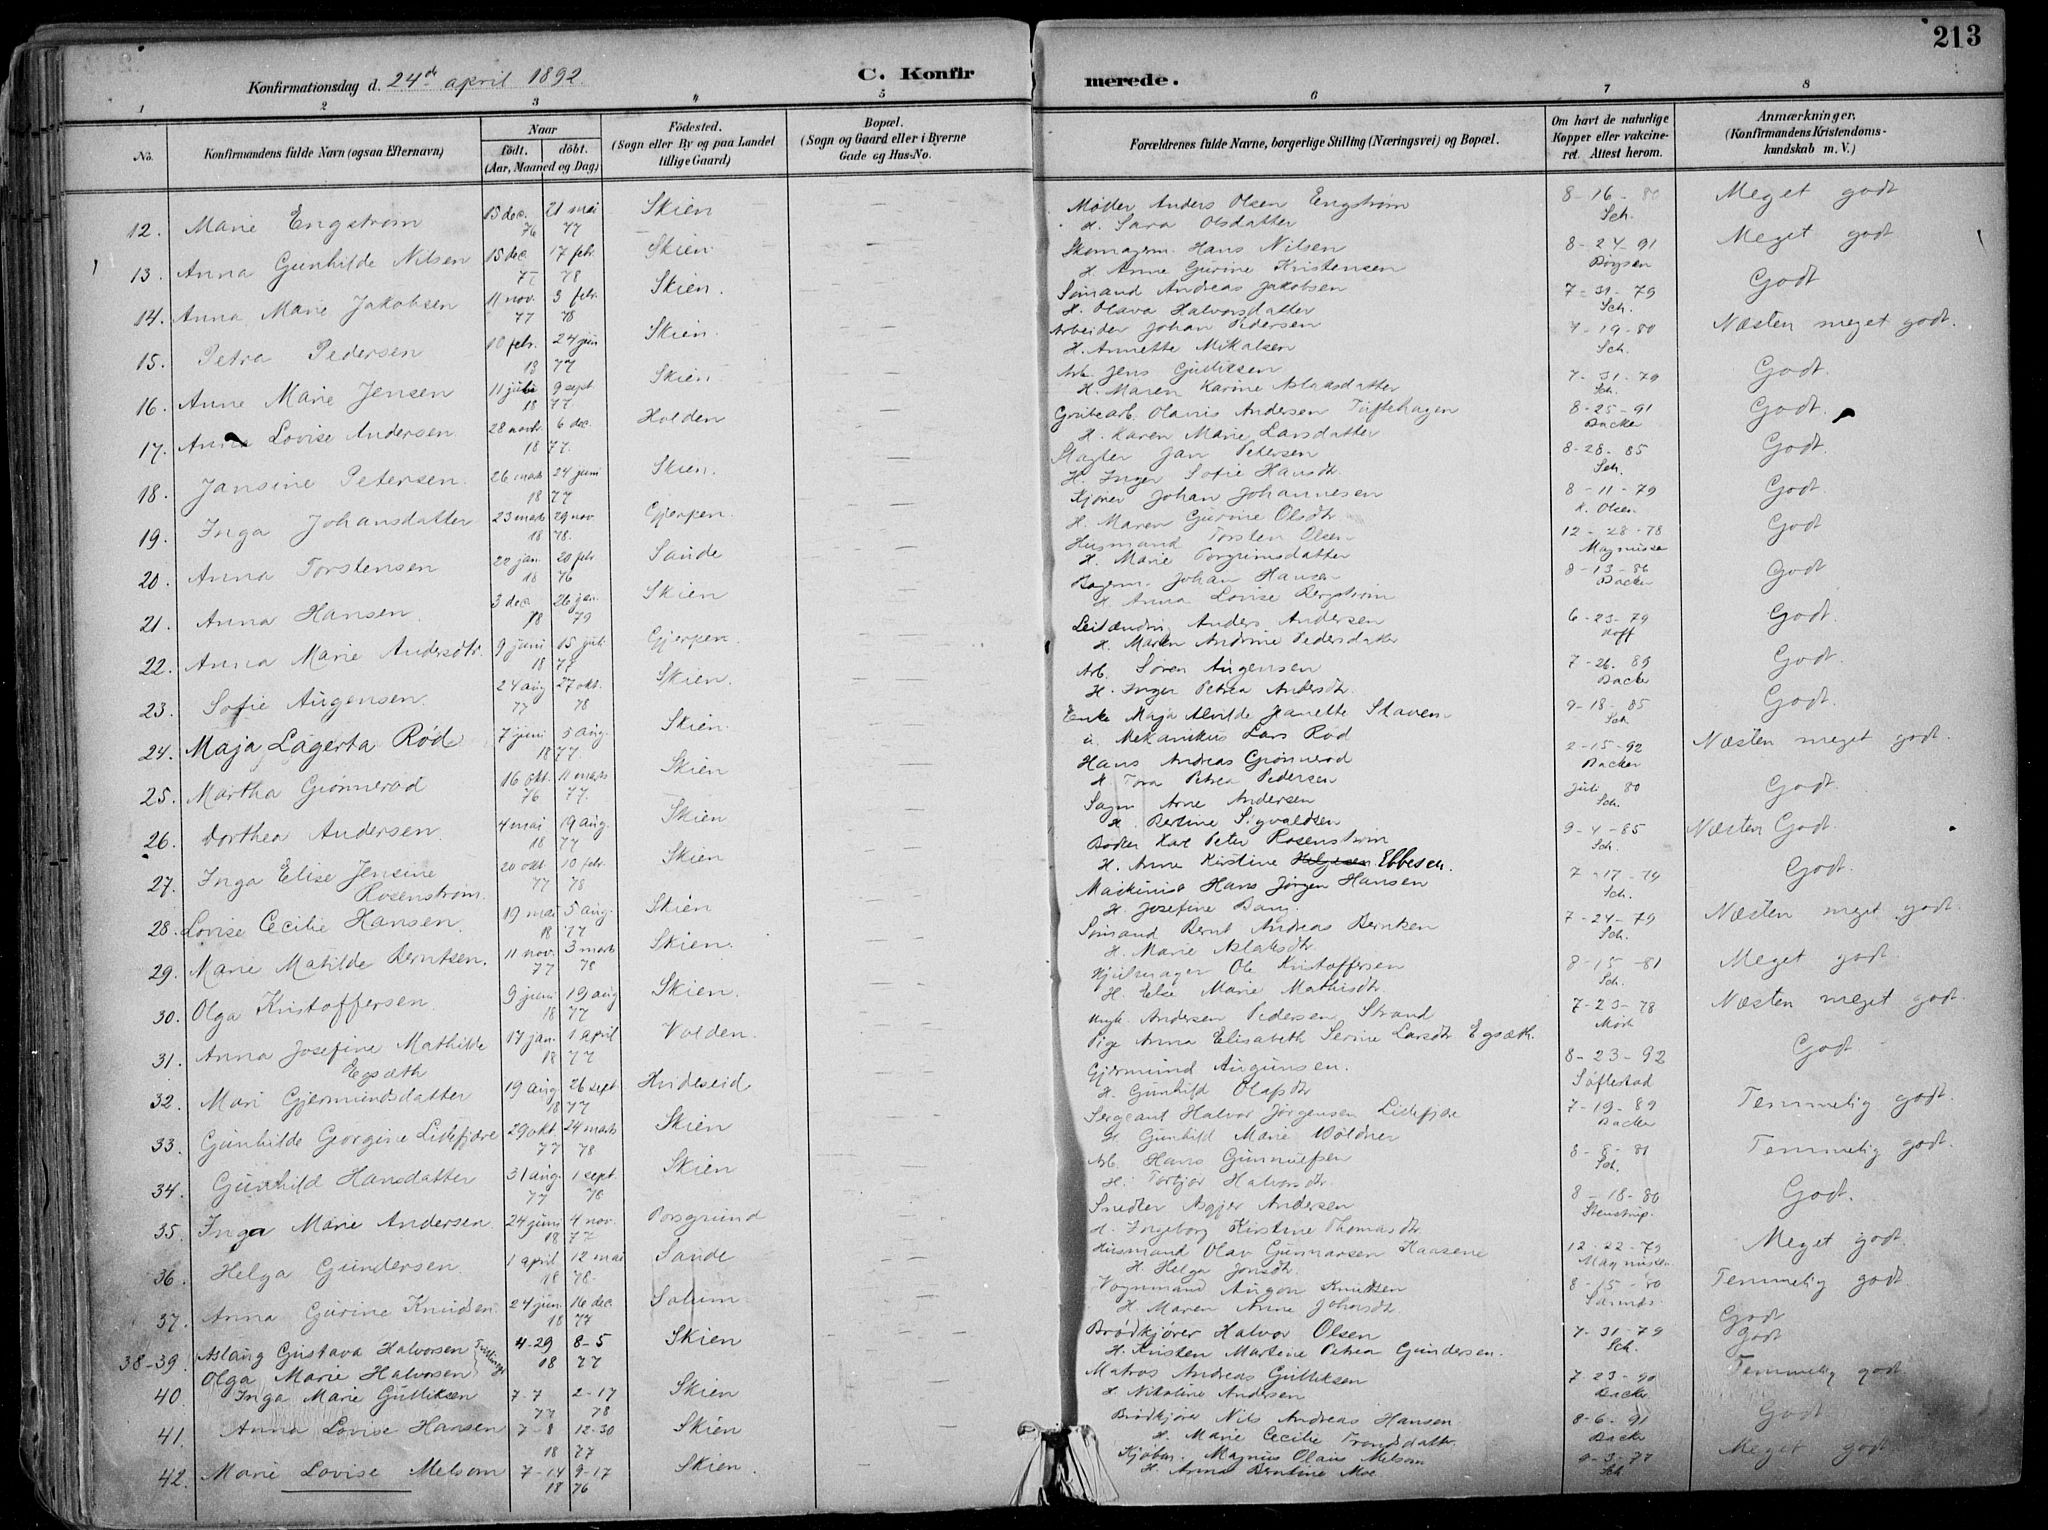 213
Konfirmationsdag d. 24de april 1892. C. Konfirmerede.
1 2 3 4 5 6 7 8
No. Konfirmandens fulde Navn (ogsaa Efternavn) Naar født. døbt. (Aar, Maaned og Dag) Fødested. (Sogn eller By og paa Landet tillige Gaard) Bopæl. (Sogn og Gaard eller i Byerne Gade og Hus-No. Forældrenes fulde Navne, borgerlige Stilling (Næringsvei) og Bopæl. Om havt de naturlige Kopper eller vakcineret. Attest herom. Anmærkninger. (Konfirmandens Kristendomskundskab m. V.)
12. Marie Engstrøm 15 dec. 76 21 mai 77 Skien Møller Anders Olsen Engstrøm 8-16-80 Meget godt
H. Sara Olsdatter Sch.
13. Anna Gunhilde Nilsen 15 dec 77 17 febr. 78 Skien. Skomagerm. Hans Nilsen 8-24-91 Meget godt
H. Anne Gurine Kristensen Bøysen
14. Anna Marie Jakobsen 11 nov. 77 3 febr. 78 Skien. Sømand Andreas Jakobsen 7-31-79 Godt
H. Olava Halvorsdatter Sch.
15. Petra Pedersen 10 febr. 24 juni 1877 Skien. Arbeider Johan Pedersen 7-19-80 Næsten meget godt.
H. Annette Mikalsen Sch.
16. Anne Marie Jensen 11 juli 9 sept. 1877 Skien. Arb. Jens Gulliksen 7-31-79 Godt.
H. Maren Karine Aslaksdatter Sch.
17. Anna Lovise Andersen 28 novb. 6 dec. 1877. Holden Grubearb. Olavus Andersen Tuftehagen 8-25-91 Godt.
H. Karen Marie Larsdatter Backe
18. Jansine Petersen 26 marts 24 juni 1877 Skien. Slagter Jan Petersen 8-28-85 Godt.
H. Inger Sofie Hansdtr. Sch.
19. Inga Johansdatter 23 marts 29 nov 1878. Gjerpen. Kjører Johan Johannesen 8-11-79 Godt
H. Maren Gurine Olsdtr. Olsen
20. Anna Torstensen 22 jan. 20 febr 1876 Saude Husmand Torsten Olsen 12-28-78 Godt
H. Marie Torgrimsdatter Magnusse
21. Anna Hansen 3 dec 18 26 jan. 79 Skien Bagerm. Johan Hansen 8-13-86 Godt
H. Anna Lovise Bergstrøm Backe
22. Anna Marie Andersdtr. 9 juni 15 juli 1877 Gjerpen. Leilænding Anders Andersen 6-23-79 Godt.
H. Maren Andrine Pedersdatter Hoff
23. Sofie Augensen 24 aug 77 27 okt. 78 Skien. Arb. Søren Augensen 7-26-89 Godt.
H. Inger Petrea Andersdtr. Backe
24. Maja Lagerta Rød 7 juni 5 aug. 1877. Skien. Enke Maja Alvilde Jeanette Staven 9-18-85 Godt.
u. Mekanikus Lars Rød Sch.
25. Martha Grønnerød 16 okt. 76 11 marts 77. Skien Hans Andreas Grønnerød 2-15-92 Næsten meget godt.
H Tora Petrea Pedersen Backer
26. Dorthea Andersen. 4 mai 19 aug. 1877 Skien Sagm Arne Andersen juli 80 Godt.
H. Bertine Sigvaldsen Sch.
27. Inga Elise Jensine Rosenstrøm. 20 okt. 77 10 febr. 78 Skien Bødker Karl Peter Rosenstrøm 9-4-85 Næsten Godt.
H. Anne Kirstine Helgesen Ebbesen. Sch.
28. Lovise Cecilie Hansen. 19 mai 5 aug. 1877 Skien Maskinist Hans Jørgen Hansen 7-17-79 Godt.
H. Josefine Bang. Sch.
29. Marie Matilde Berntsen. 11 nov. 77 3 marts 78 Skien. Sømand Bernt Andreas Berntsen 7-24-79 Næsten meget godt.
H. Marie Aslaksdtr. Sch.
30. Olga Kristoffersen. 9 juni 19 aug 1877 Skien. Hjulmager Ole Kristoffersen 8-15-81 Meget godt.
H. Else Marie Mathisdtr. Sch.
31. Anna Josefine Mathilde Egsæth 17 jan. 1 april 1877 Volden. Ungk. Andersen Pedersen Strand 7-23-78 Næsten meget godt.
Pige Anna Elisabeth Serine Larsdtr Egsæth. Mørk
32. Mari Gjermundsdatter 19 aug 26 sept. 1877 Hvideseid Gjermund Augunsen. 8-23-92 Godt
H. Gunhild Olafsdtr Søftestad
33. Gunhilde Georgine Lidefjære 29 okt. 77 24 marts 78 Skien Sergeant Halvor Jørgensen Lidefjære 7-19-89 Temmelig godt.
H Gunhild Marie Wöldner Backer
34. Gunhild Hansdatter 31 aug. 77 1 sept. 78 Skien Arb. Hans Gunnulfsen 8-8-81 Temmelig godt.
H. Torbjør Halvorsdtr. Sch.
35. Inga Marie Andersen. 24 juni 4 nov. 1877 Porsgrund Snedker Asgjer Andersen 8-18-80 Godt.
H. Ingeborg Kirstine Thomasdtr Stenstrup.
36. Helga Gundersen. 1 april 12 mai 1878. Saude Husmand Olav Gunnarsen Kaasene 12-22-79 Meget godt.
H. Helga Jonsdtr. Magnussen
37. Anna Gurine Knudsen. 24 jun. 16 dec. 1877 Solum. Vognmand Augon Knudsen 8-15-80 Temmelig godt.
H. Maren Anne Johansdtr.
38-39. Aslaug Gustava Halvorsen 4-29 8-5 1877 Skien Brødkjører Halvor Olsen 7-31-79 Godt
Olga Marie Halvorsen Tvillinge H. Kristen Martine Petrea Gundersen. Sch. Godt
40 Inga Marie Gulliksen 7-7 77 2-17 78 Skien Matros Andreas Gulliksen 7-23-90 Temmelig godt
H. Nikoline Andersen Backe
41. Anna Lovise Hansen 7-8 12-30 1877 Skien Brødkjører Nils Andreas Hansen 8-6-91 Godt
H. Marie Cecilie Trondsdatter Backe
42. Marie Lovise Melsom 7-14 9-17 1876 Skien. Kjøbm. Magnus Olaus Melsom 9-3-77 Meget godt
H. Anna Berntine Moe Sch.